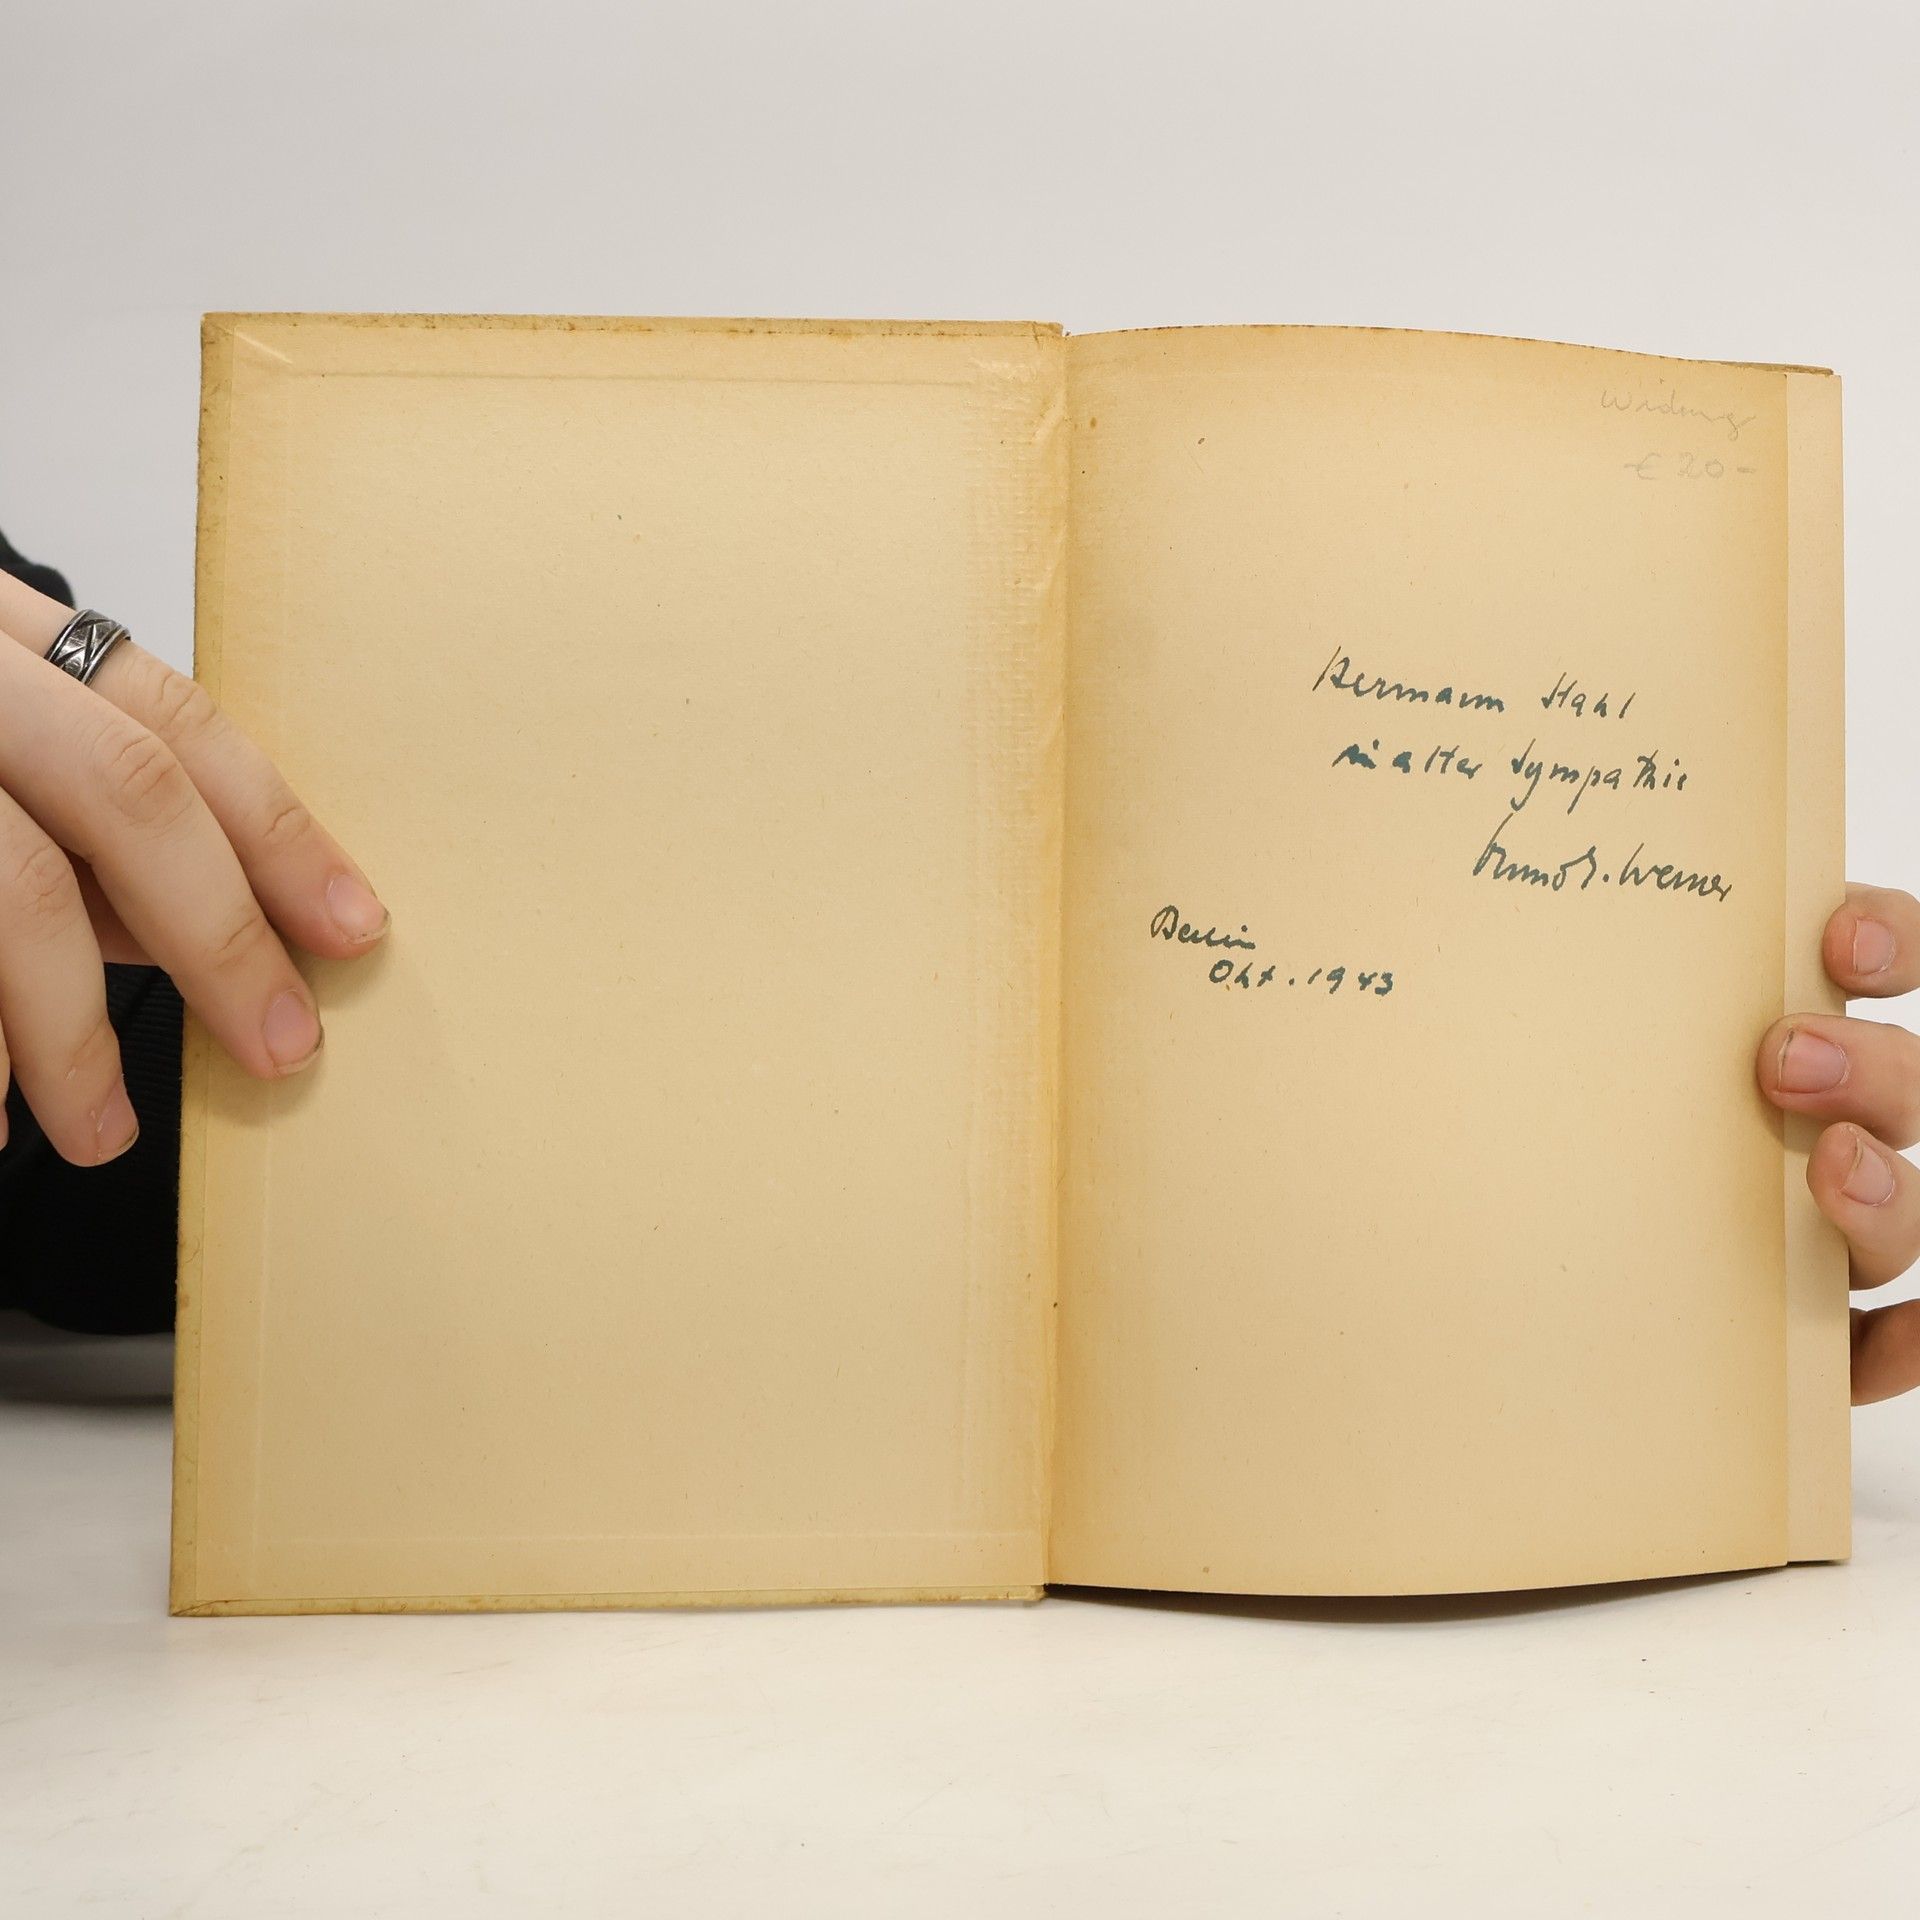 Widmg
€ 20-
Hermann Stahl
in alter Sympathie
Bruno E. Werner
Berlin
Okt. 1943